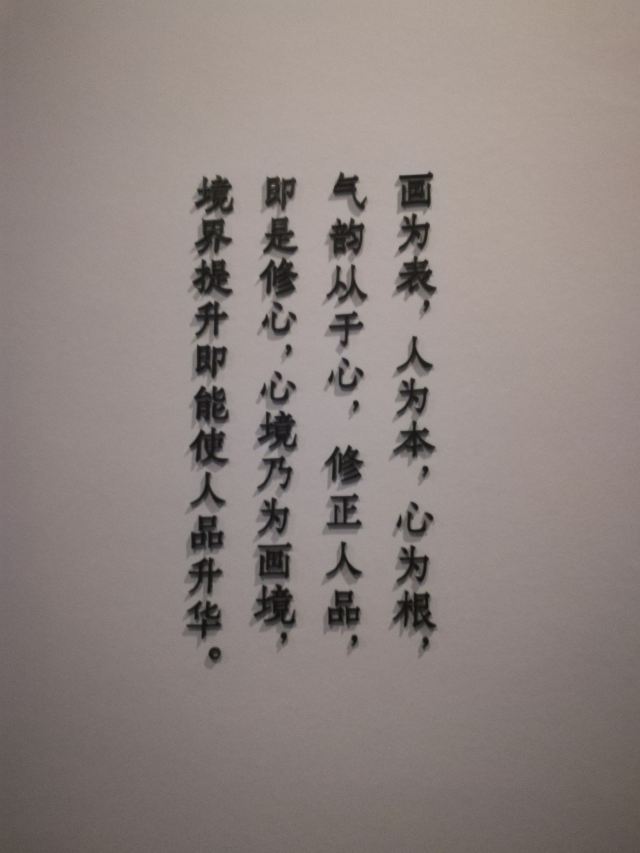 画为表，人为本，心为根，
气韵从于心，修正人品，
即是修心，心境乃为画境，
境界提升即能使人品升华。